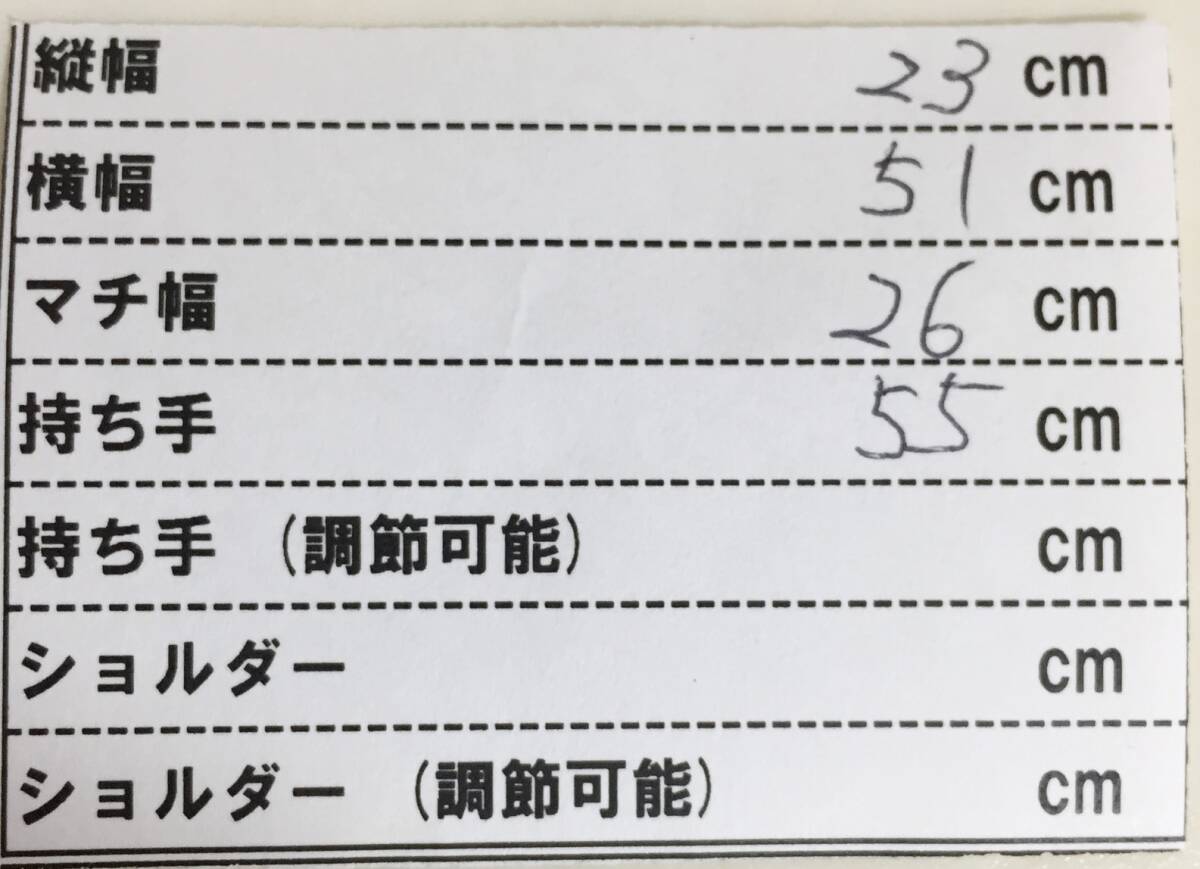 縦幅 23 cm
横幅 51 cm
マチ幅 26 cm
持ち手 55 cm
持ち手 (調節可能) cm
ショルダー cm
ショルダー (調節可能) cm